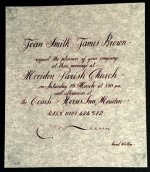 Joan Smith James Brown
request the pleasure of your company
at their marriage at
Meriden Parish Church
on Saturday 15 March at 3.00 pm
and afterwards at
the Coach & Horses Inn, Meriden
R.S.V.P.